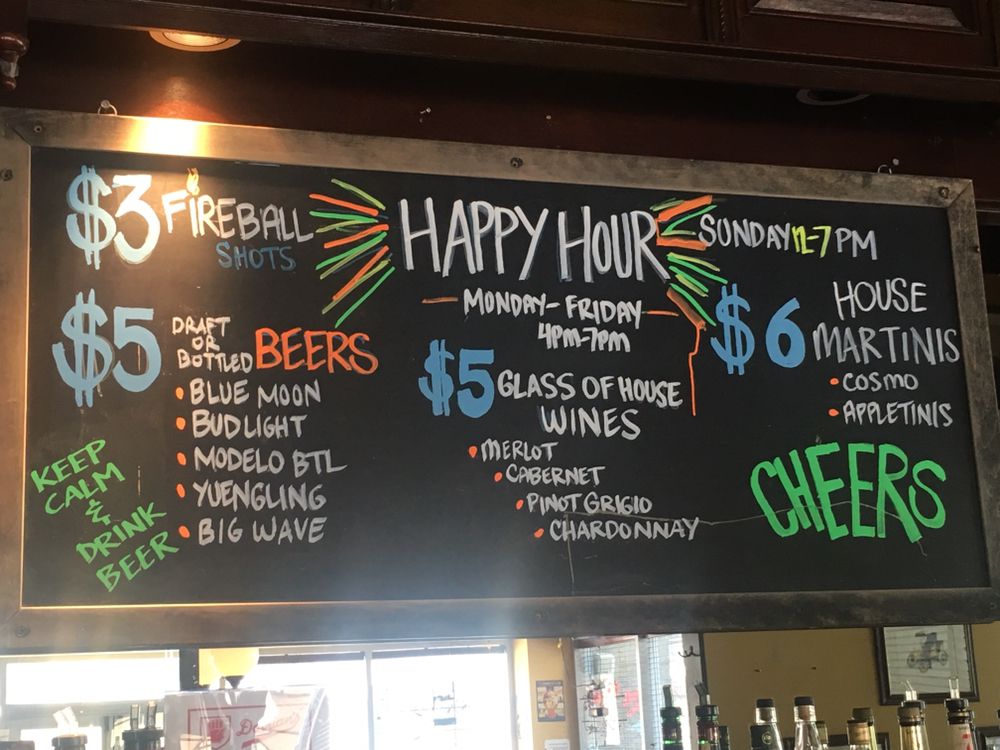 $3 FIREBALL
SHOTS
HAPPY HOUR
MONDAY-FRIDAY
4PM-7PM
SUNDAY 12-7 PM
$5 DRAFT
OR
BOTTLED BEERS
• BLUE MOON
• BUD LIGHT
• MODELO BTL
• YUENGLING
• BIG WAVE
KEEP
CALM
&
DRINK
BEER
$5 GLASS OF HOUSE
WINES
• MERLOT
• CABERNET
• PINOT GRIGIO
• CHARDONNAY
$6 HOUSE
MARTINIS
• COSMO
• APPLETINIS
CHEERS